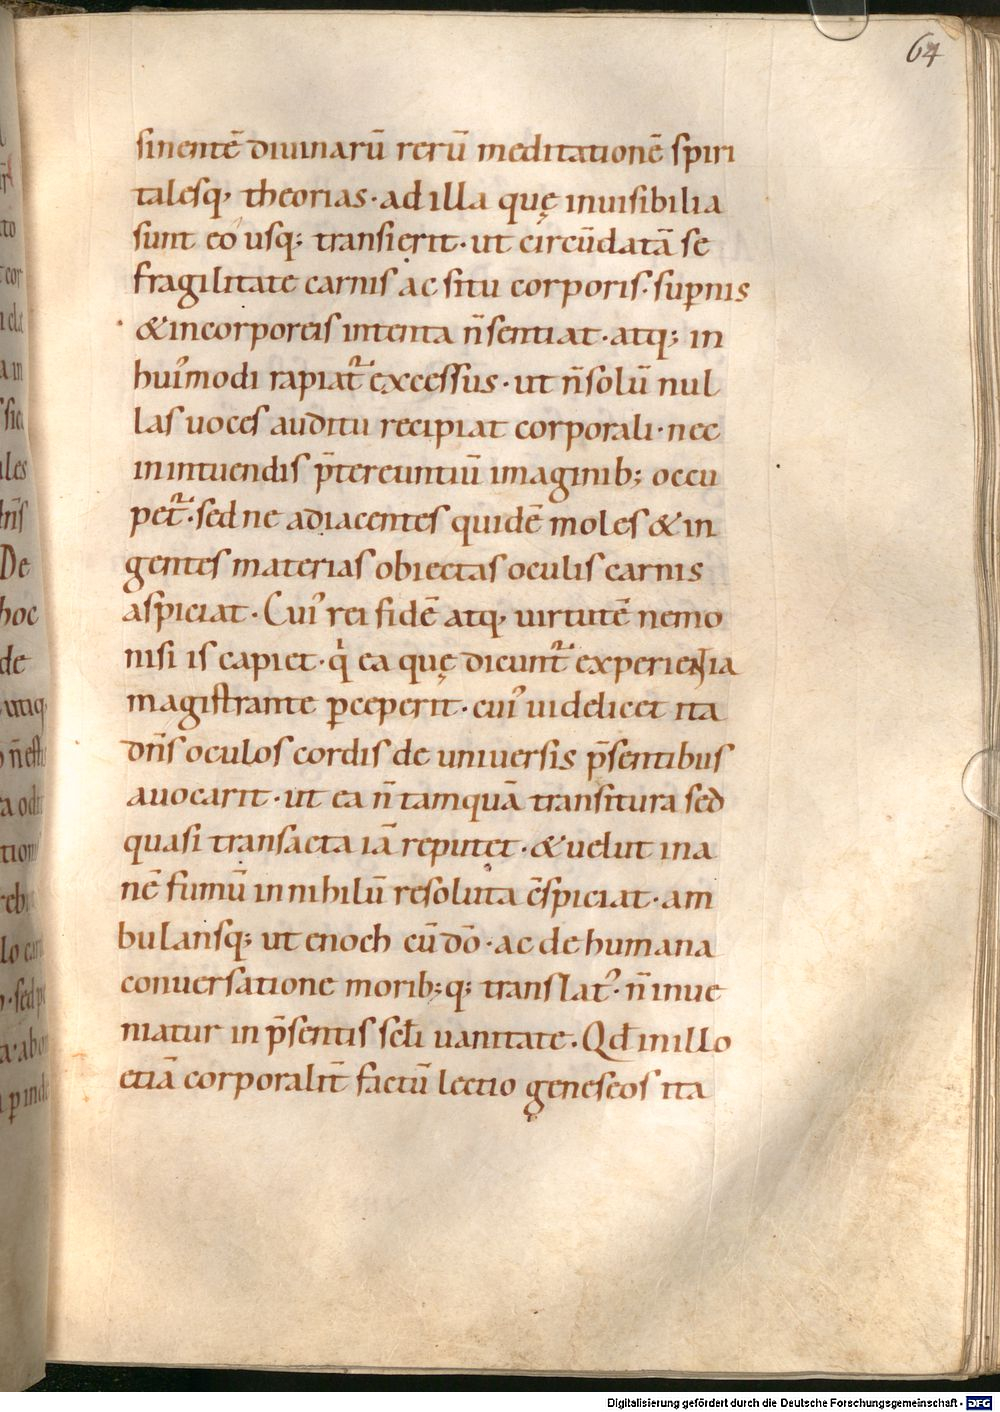 64
sinentē diuinarū rerū meditationē spiri
talesq; theorias · ad illa quę inuisibilia
sunt eo usq; transierit · ut circūdatā se
fragilitate carnis ac situ corporis · sup̄nis
& incorporeis intenta n̄ sentiat · atq; in
hui᾽modi rapiat᷑ excessus · ut n̄ solū nul
las uoces auditu recipiat corporali · nec
in intuendis p̄tereuntiū imaginib; occu
pet᷑ · sed ne adiacentes quidē moles & in
gentes materias obiectas oculis carnis
aspiciat · Cui᾽ rei fidē atq; uirtutē nemo
nisi is capiet · q̇ ea quę dicunt᷑ experientia
magistrante ꝑceperit · cui᾽ uidelicet ita
dn̄s oculos cordis de uniuersis p̄sentibus
auocarit · ut ea n̄ tamquā transitura sed
quasi transacta iā reputet · & uelut ina
nē fumū in nihilū resoluta c̄spiciat · am
bulansq; ut enoch cū dō · ac de humana
conuersatione morib; q; translat᾽ · n̄ inue
niatur in p̄sentis sc̄li uanitate · Qd̄ in illo
etiā corporalit̄ factū lectio geneseos ita
Digitalisierung gefördert durch die Deutsche Forschungsgemeinschaft - DFG